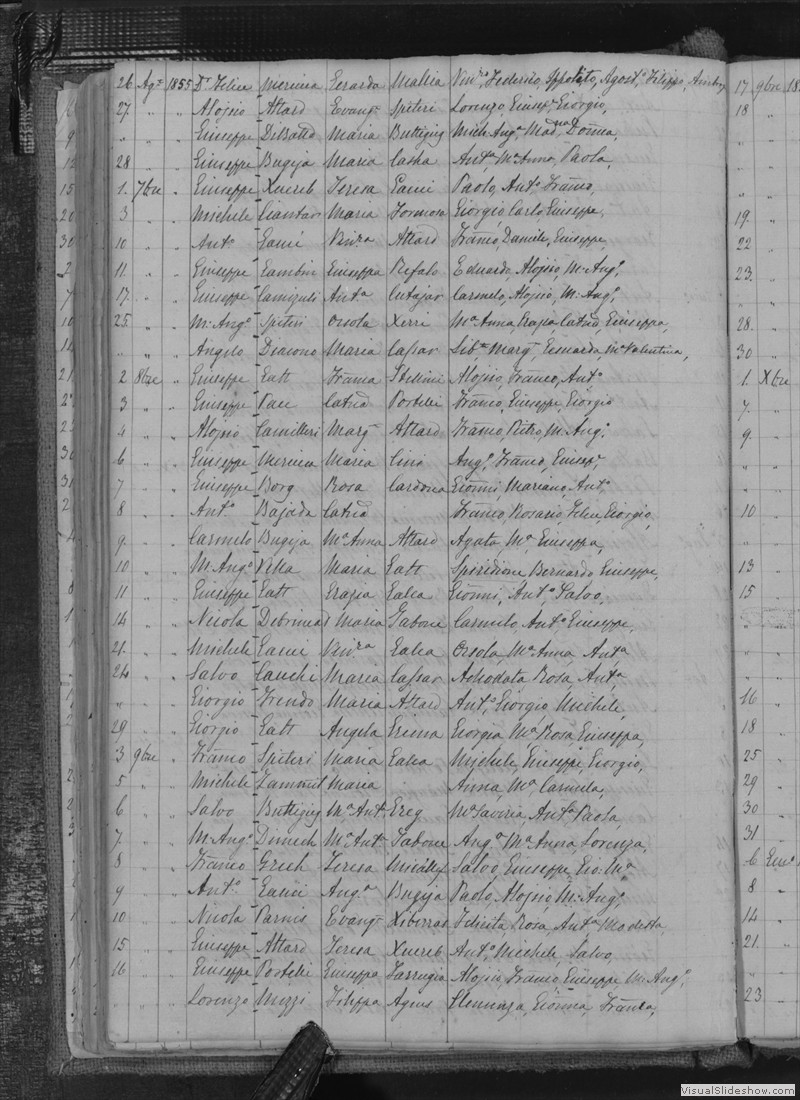 26 Ag.e 1855 Dr Felice Mercieca Gerarda Mallia Vinc.o, Federico, Ippolito, Agost.o, Filippo, Ambrog
27 „ „ Aloisio Attard Evang.a Spiteri Lorenzo, Giusep.e Giorgio,
„ „ „ Giuseppe DiBatto Maria Buttigieg Mich. Ang.o Mad.na Donna,
28 „ „ Giuseppe Bugeja Maria Casha Ant.a, M.a Anna, Paola,
1. 7bre „ Giuseppe Xuereb Teresa Gauci Paolo, Ant.o Franco,
3 „ „ Michele Ciantar Maria Formosa Giorgio Carlo Giuseppe,
10 „ „ Ant.o Gauci Vin.za Attard Franco, Daniele, Giuseppe,
11. „ „ Giuseppe Gambin Giuseppa Refalo Eduardo, Aloisio, M. Ang.o,
17. „ „ Giuseppe Camizuli Ant.a Cutajar Carmelo, Aloisio, M. Ang.o,
25. „ „ M. Ang.o Spiteri Orsola Xerri M.a Anna, Grazia Catna Giuseppa,
„ „ „ Angelo Diacono Maria Cassar Marg.a M.a Valentina,
2 8bre „ Giuseppe Gatt Franca Stellini Aloisio, Franco, Ant.o
3 „ „ Giuseppe Pace Catna Portelli Franco, Giuseppe, Giorgio
4 „ „ Aloisio Camilleri Marg.a Attard Franco, Pietro, M. Ang.o,
6 „ „ Giuseppe Mercieca Maria Cini Ang.o, Franco, Giusep.e
7 „ „ Giuseppe Borg Rosa Cardona Gionni, Mariano, Ant.o,
8 „ „ Ant.o Bajada Catna Franco, Rosario Felice, Giorgio,
9 „ „ Carmelo Bugeja M.a Anna Attard Agata, M.a Giuseppa,
10 „ „ M. Ang.o Vella Maria Gatt Speridione Bernardo Giuseppe,
11 „ „ Giuseppe Gatt Grazia Galea Gionni, Ant.o Salvo,
14 „ „ Nicola Debrincat Maria Tabone Carmelo, Ant.o Giuseppe,
21. „ „ Michele Gauci Vin.za Galea Orsola, M.a Anna, Ant.a
24 „ „ Salvo Cauchi Maria Cassar Adeodata, Rosa, Ant.a
„ „ „ Giorgio Trendo Maria Attard Ant.o, Giorgio, Michele,
29 „ „ Giorgio Gatt Angela Grima Giorgia, M.a Rosa, Giuseppa,
3 9bre „ Franco Spiteri Maria Galea Michele, Giuseppe, Giorgio,
5 „ „ Michele Zammit Maria Anna, M.a Carmela,
6 „ „ Salvo Buttigieg M.a Ant.a Greg M.a Saveria, Ant.a Paola,
7 „ „ M. Ang.o Dimech M.a Ant.a Tabone Ang.a M.a Anna, Lorenza,
8 „ „ Franco Grech Teresa Micallef Salvo, Giuseppe, Gio. M.a
9 „ „ Ant.o Gauci Ang.a Bugeja Paolo, Aloisio, M. Ang.o,
10 „ „ Nicola Parnis Evang.a Xiberras Felicita Rosa, Ant.a Modesta,
15 „ „ Giuseppe Attard Teresa Xuereb Ant.o, Michele, Salvo,
16 „ „ Giuseppe Portelli Giuseppa Farrugia Aloisio, Franco, Giuseppe, M. Ang.o,
„ „ Lorenzo Muzzi Filippa Agius Giovna, Franca,
17 9bre 18
18
19.
22
23.
28.
30
1. Xbre
7.
9
10
13
15
16
18
25
29
30
31
6
8
14
21.
23
VisualSlideshow.com